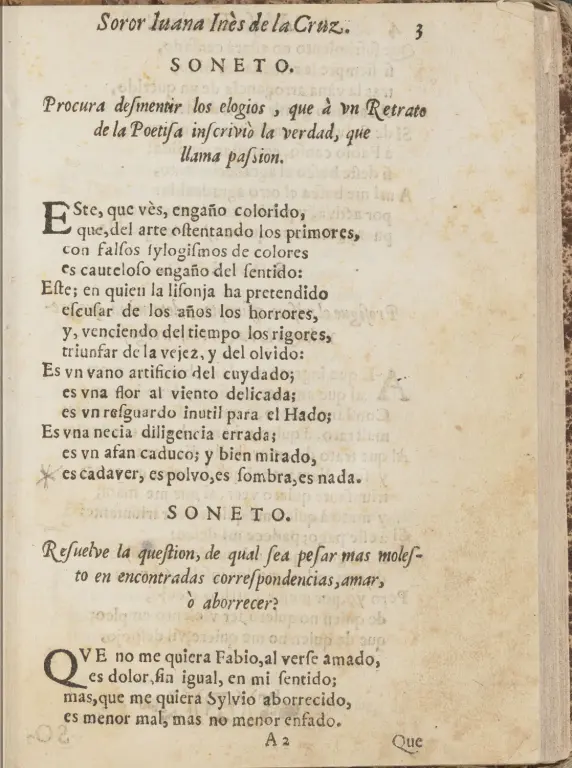 Soror Iuana Inès de la Cruz. 3
SONETO.
Procura deſmentir los elogios, que à vn Retrato
de la Poetiſa inſcriviò la verdad, que
llama paſsion.
ESte, que vès, engaño colorido,
que, del arte oſtentando los primores,
con falſos ſylogiſmos de colores
es cauteloſo engaño del ſentido:
Eſte; en quien la liſonja ha pretendido
eſcuſar de los años los horrores,
y, venciendo del tiempo los rigores,
triunfar de la vejez, y del olvido:
Es vn vano artificio del cuydado;
es vna flor al viento delicada;
es vn reſguardo inutil para el Hado;
Es vna necia diligencia errada;
es vn afan caduco; y bien mirado,
es cadaver, es polvo, es ſombra, es nada.
SONETO.
Reſuelve la queſtion, de qual ſea peſar mas moleſ-
to en encontradas correſpondencias, amar,
ò aborrecer?
QVE no me quiera Fabio, al verſe amado,
es dolor, ſin igual, en mi ſentido;
mas, que me quiera Sylvio aborrecido,
es menor mal, mas no menor enfado.
A 2 Que